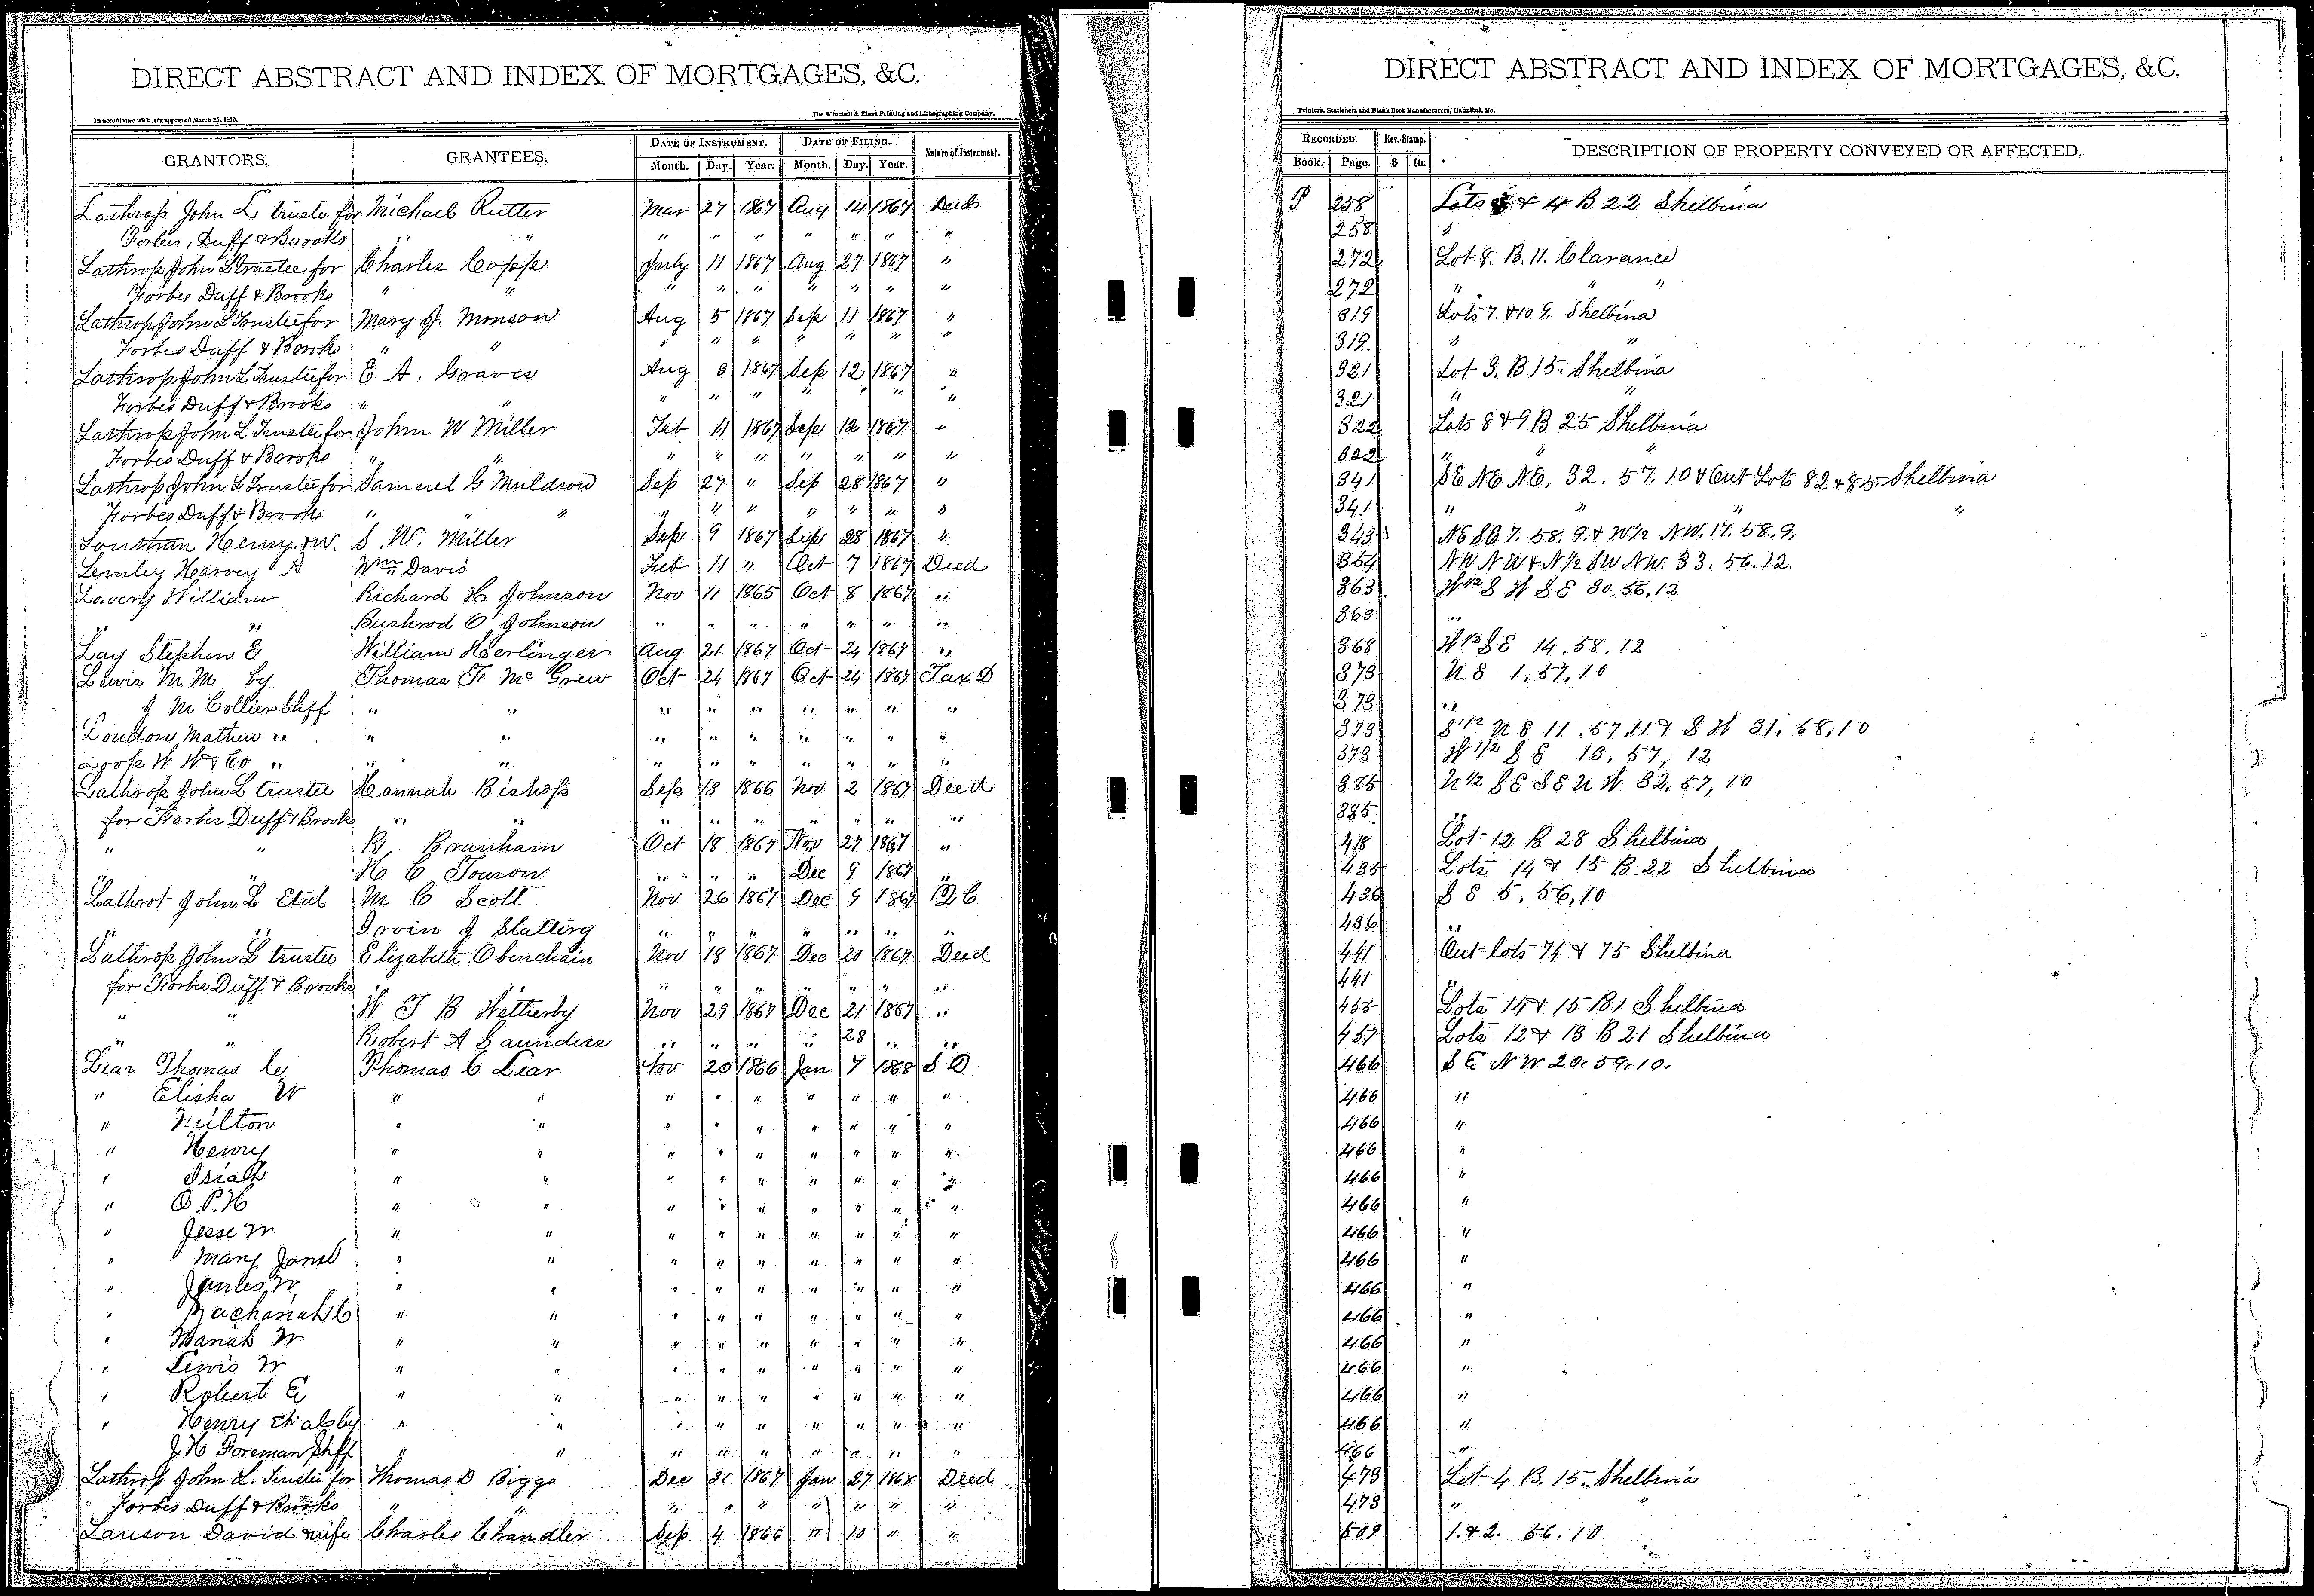 DIRECT ABSTRACT AND INDEX OF MORTGAGES, &C.
In accordance with Act approved March 25, 1870.
The Winchell & Ebert Printing and Lithographing Company,
GRANTORS. GRANTEES. DATE OF INSTRUMENT. DATE OF FILING. Nature of Instrument.
Month. Day. Year. Month. Day. Year.
Lathrop John L trustee for Michael Rutter Mar 27 1867 Aug 14 1867 Deed
Forbes, Duff & Brooks " " " " " " " " "
Lathrop John L trustee for Charles Copp July 11 1867 Aug 27 1867 "
Forbes Duff & Brooks " " " " " " " " "
Lathrop John L Trustee for Mary J. Monson Aug 5 1867 Sep 11 1867 "
Forbes Duff & Brooks " " " " " " " " "
Lathrop John L Trustee for E A. Graves Aug 8 1867 Sep 12 1867 "
Forbes Duff & Brooks " " " " " " " " "
Lathrop John L Trustee for John W Miller Feb 11 1867 Sep 12 1867 "
Forbes Duff & Brooks " " " " " " " " "
Lathrop John L Trustee for Samuel G Muldrow Sep 27 " Sep 28 1867 "
Forbes Duff & Brooks " " " " " " " " " "
Louthan Henry. & W. S. W. Miller Sep 9 1867 Sep 28 1867 "
Lemley Harvey A Wm Davis Feb 11 " Oct 7 1867 Deed
Lowery William Richard H Johnson Nov 11 1865 Oct 8 1867 "
" " Bushrod O Johnson " " " " " " "
Lay Stephen E William Herlinger Aug 21 1867 Oct 24 1867 "
Lewis M M by Thomas F McGrew Oct 24 1867 Oct 24 1867 Tax D
J M Collier Shff " " " " " " " " "
Loudon Mathew " " " " " " " " " "
Loop W W & Co " " " " " " " " " "
Lathrop John L trustee Hannah Bishop Sep 13 1866 Nov 2 1867 Deed
for Forbes Duff & Brooks " " " " " " " " "
" " B Branham Oct 18 1867 Nov 27 1867 "
" " H C Towson " " " Dec 9 1867 "
Lathrop John L Etal M C Scott Nov 26 1867 Dec 9 1867 Q C
" " Irvin J Slattery " " " " " " "
Lathrop John L trustee Elizabeth Obenchain Nov 18 1867 Dec 20 1867 Deed
for Forbes Duff & Brooks " " " " " " " " "
" " W T B Wetherby Nov 29 1867 Dec 21 1867 "
" " Robert A Saunders " " " " 28 " "
Lear Thomas C Thomas C Lear Nov 20 1866 Jan 7 1868 S D
" Elisha W " " " " " " " " "
" Milton " " " " " " " " "
" Henry " " " " " " " " "
" Isiah " " " " " " " " "
" O. P. H " " " " " " " " "
" Jesse W " " " " " " " " "
" Mary Jane " " " " " " " " "
" James W " " " " " " " " "
" Zachariah C " " " " " " " " "
" Mariah W " " " " " " " " "
" Lewis W " " " " " " " " "
" Robert E " " " " " " " " "
" Henry Et al by " " " " " " " " "
J. H Foreman Shff " " " " " " " " "
Lathrop John L. Trustee for Thomas D Biggs Dec 31 1867 Jan 27 1868 Deed
Forbes Duff & Brooks " " " " " " " " "
Lawson David & wife Charles Chandler Sep 4 1866 " 10 " "
DIRECT ABSTRACT AND INDEX OF MORTGAGES, &C.
Printers, Stationers and Blank Book Manufacturers, Hannibal, Mo.
RECORDED. Rev. Stamp. DESCRIPTION OF PROPERTY CONVEYED OR AFFECTED.
Book. Page. $ Cts.
P 258 Lots & 4 B 22 Shelbina
258 "
272 Lot 8. B. 11. Clarance
272 " " "
319 Lots 7. & 10 9. Shelbina
319. " "
321 Lot 3. B 15. Shelbina
321 " "
322 Lots 8 & 9 B 25 Shelbina
322 " " "
341 SE NE NE. 32. 57. 10 & Out Lots 82 & 85. Shelbina
341 " " " "
343 NE SE 7. 58. 9. & W 1/2 NW. 17. 58. 9.
354 NW NW & N 1/2 SW NW. 33. 56. 12.
363 W 1/2 S W S E 30, 56, 12
363 "
368 W 1/2 S E 14, 58, 12
373 N E 1, 57, 10
373 "
373 S 1/2 N E 11, 57, 11 & S W 31, 58, 10
373 W 1/2 S E 13, 57, 12
385 N 1/2 S E S E N W 32, 57, 10
385 "
418 Lot 12 B 28 Shelbina
435 Lots 14 & 15 B. 22 Shelbina
436 S E 5, 56, 10
436 "
441 Out lots 74 & 75 Shelbina
441 "
455 Lots 14 & 15 B 1 Shelbina
457 Lots 12 & 13 B 21 Shelbina
466 S E N W 20. 59. 10.
466 "
466 "
466 "
466 "
466 "
466 "
466 "
466 "
466 "
466 "
466 "
466 "
466 "
466 "
473 Lot 4 B. 15. Shelbina
473 " "
509 1. & 2. 56. 10